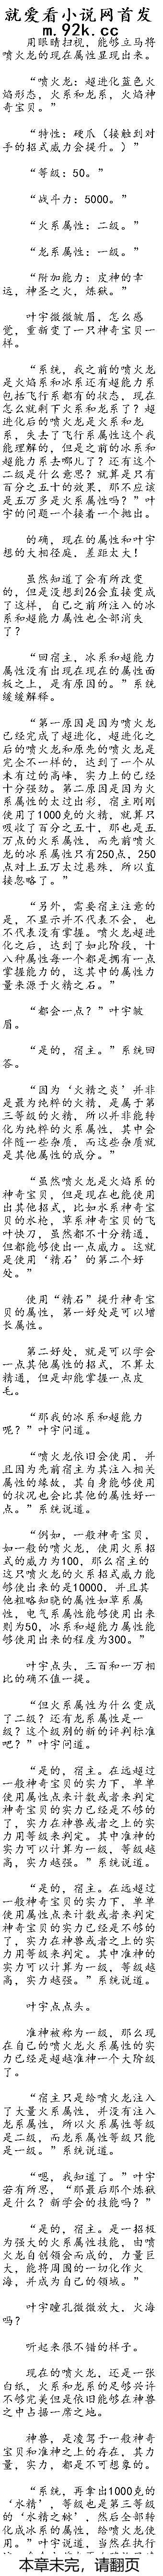 就爱看小说网首发
m.92k.cc
用眼睛扫视，能够立马将
喷火龙的现在属性显现出来。
“喷火龙：超进化蓝色火
焰形态，火系和龙系，火焰神
奇宝贝。”
“特性：硬爪（接触到对
手的招式威力会提升。）”
“等级：50。”
“战斗力：5000。”
“火系属性：二级。”
“龙系属性：一级。”
“附加能力：皮神的幸
运，神圣之火，炼狱。”
叶宇微微皱眉，怎么感
觉，重新变了一只神奇宝贝一
样。
“系统，我之前的喷火龙
是火焰系和冰系还有超能力系
包括飞行系都有的状态，现在
怎么就剩下火系和龙系了？超
进化后的喷火龙是火系和龙
系，失去了飞行系属性这个我
能理解的，但是之前的冰系和
超能力系去哪儿了？还有这个
二级是什么意思？就算是只有
百分之五十的效果，那不应该
是五万多是火系属性吗？”叶
宇的问题一个接着一个抛出。
的确，现在的属性和叶宇
想的大相径庭，差距太大！
虽然知道了会有所改变
的，但是没想到26会直接变成
了这样，自己之前所注入的冰
系和超能力属性也全部消失
了？
“回宿主，冰系和超能力
属性没有出现在现在的属性面
板之上，是有原因的。”系统
缓缓解释。
“第一原因是因为喷火龙
已经完成了超进化，超进化之
后的喷火龙和原先的喷火龙是
完全不一样的，达到了一个从
未有过的高峰，实力上的已经
十分强劲。第二原因是因为火
系属性的太过出彩，宿主刚刚
使用了1000克的火精，就算只
吸收了百分之五十，那也是五
万点的火系属性，而先前喷火
龙的冰系属性只有250点，250
点对上五万太过悬殊，所以直
接忽略了。”
“另外，需要宿主注意的
是，不显示并不代表不会，也
不代表没有掌握。喷火龙超进
化之后，达到了如此阶段，十
八种属性每一个都是拥有一点
掌握能力的，这其中的属性力
量来源于火精之石。”
“都会一点？”叶宇皱
眉。
“是的，宿主。”系统回
答。
“因为‘火精之炎’并非
是最为纯粹的火精，是属于第
三等级的火精，所以并非能转
化为纯粹的火系属性，其中会
伴随一些杂质，而这些杂质就
是其他属性的成分。”
“虽然喷火龙是火焰系的
神奇宝贝，但是现在也能使用
出其他招式，比如水系神奇宝
贝的水枪，草系神奇宝贝的飞
叶快刀，虽然都不十分精通，
但都能够使出一点威力。这就
是使用‘精石’的第二个好
处。”
使用“精石”提升神奇宝
贝的属性，第一好处是可以增
长属性。
第二好处，就是可以学会
一点其他属性的招式，不算太
精通，但是却能掌握一点皮
毛。
“那我的冰系和超能力
呢？”叶宇问道。
“喷火龙依旧会使用，并
且因为先前宿主为其注入相关
属性的缘故，其自身能够使用
的状况也会比其他的属性好一
点。”系统说道。
“例如，一般神奇宝贝，
如一般的喷火龙，使用火系招
式的威力为100，那么宿主的
这只喷火龙的火系招式威力能
够使出来的是10000，并且其
他粗略知晓的属性如草系属
性，电气系属性能够使用出来
则为50，冰系和超能力属性能
够使用出来的程度为300。”
叶宇点头，三百和一万相
比的确不值一提。
“但火系属性为什么变成
了二级？还有龙系属性是一
级？这个级别的新的评判标准
吧？”叶宇问道。
“是的，宿主。在远超过
一般神奇宝贝的实力下，单单
使用属性点来计数或者来判定
神奇宝贝的实力已经是不够的
了，实力在神兽或者之上的实
力用等级来判定。其中准神的
实力可以计算为一级，等级越
高，实力越强。”系统说道。
“是的，宿主。在远超过
一般神奇宝贝的实力下，单单
使用属性点来计数或者来判定
神奇宝贝的实力已经是不够的
了，实力在神兽或者之上的实
力用等级来判定。其中准神的
实力可以计算为一级，等级越
高，实力越强。”系统说道。
叶宇点点头。
准神被称为一级，那么现
在自己的喷火龙火系属性的实
力已经是超越准神一个大阶级
了。
“宿主只是给喷火龙注入
了大量火系属性，并没有注入
龙系属性，所以火系属性等级
是二级，而龙系属性等级只能
是一级。”系统说道。
“嗯，我知道了。”叶宇
若有所思，“那最后那个炼狱
是什么？新学会的技能吗？”
“是的，宿主。是一招极
为强大的火系属性技能，由喷
火龙自创领会而成的，力量巨
大，能将周围的一切化作火
海，并成为自己的领域。”
叶宇瞳孔微微放大，火海
吗？
听起来很不错的样子。
现在的喷火龙，还是一张
白纸，火系和龙系的足够兴许
不够完美但是依旧能够在神兽
之中占据一席之地。
神兽，是凌驾于一般神奇
宝贝和准神之上的存在，其力
量，实力，都是不可想象的。
“系统，再拿出1000克的
‘水精’，等级也是第三等级
的‘水精之称’，然后全部转
化成冰系的属性，给喷火龙使
用。”叶宇说道，当然在执行
本章未完，请翻页